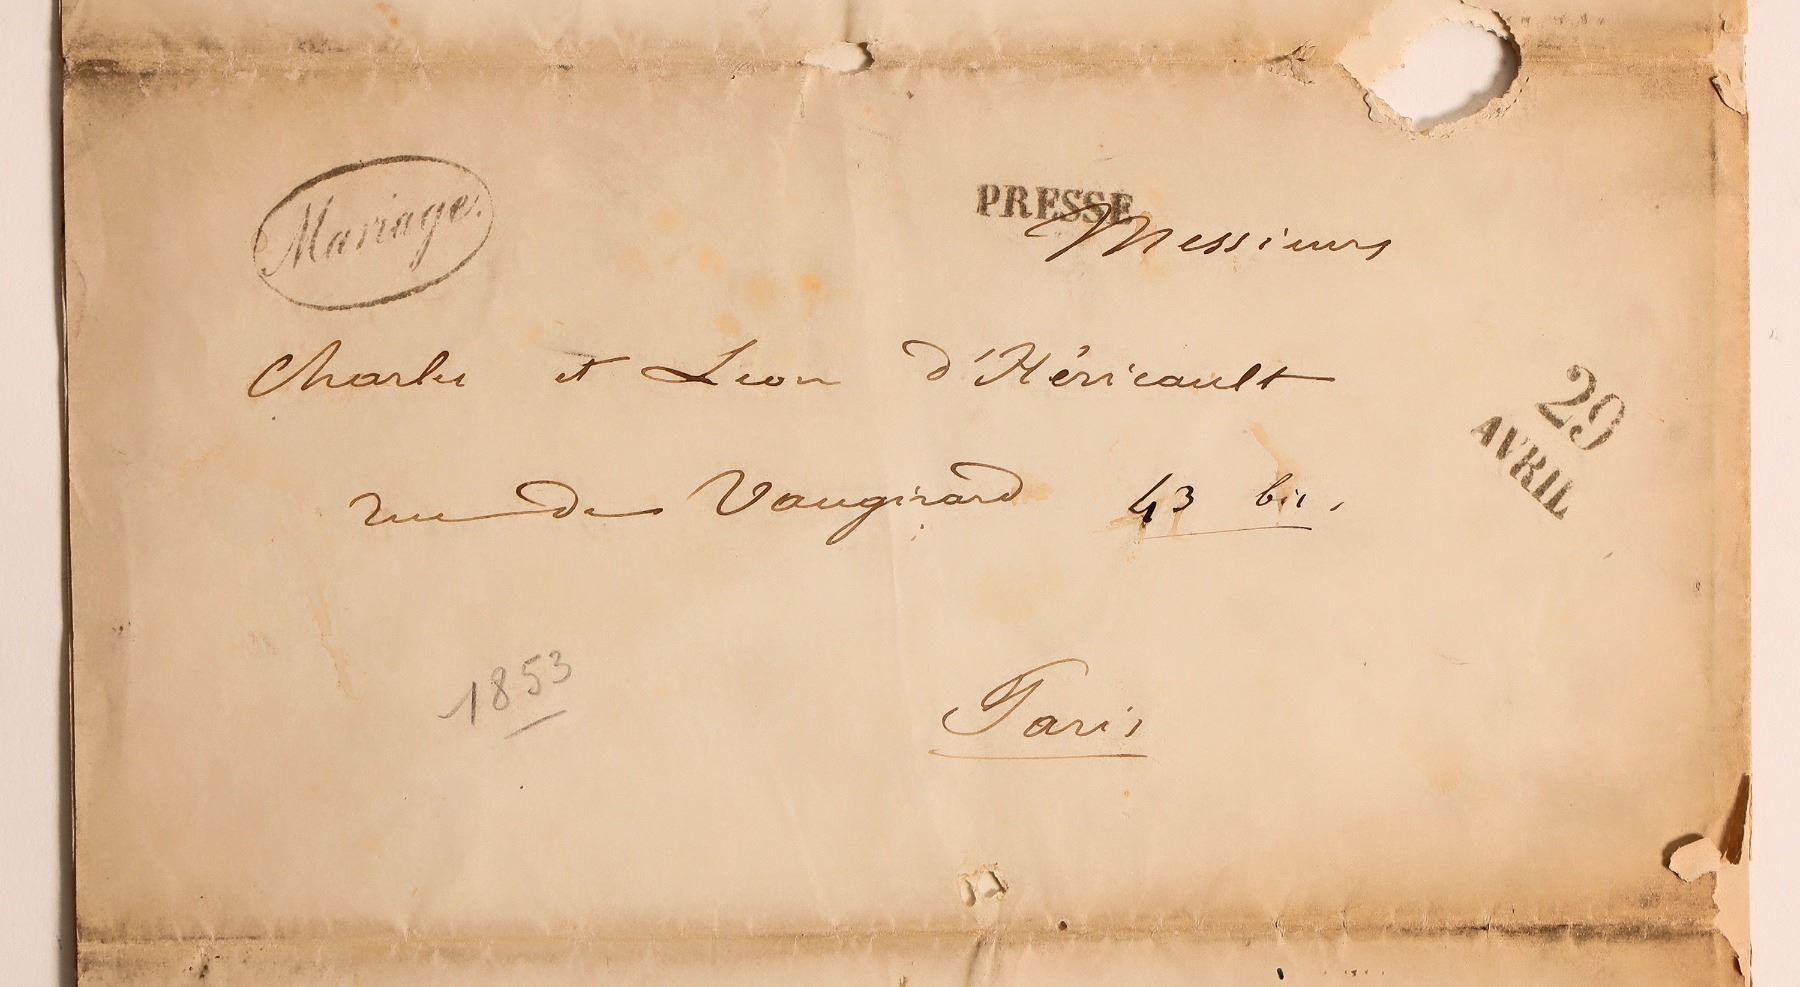 Mariage.
PRESSE
Messieurs
Charles et Léon d'Héricault
rue de Vaugirard 43 bis.
29
AVRIL
1853
Paris